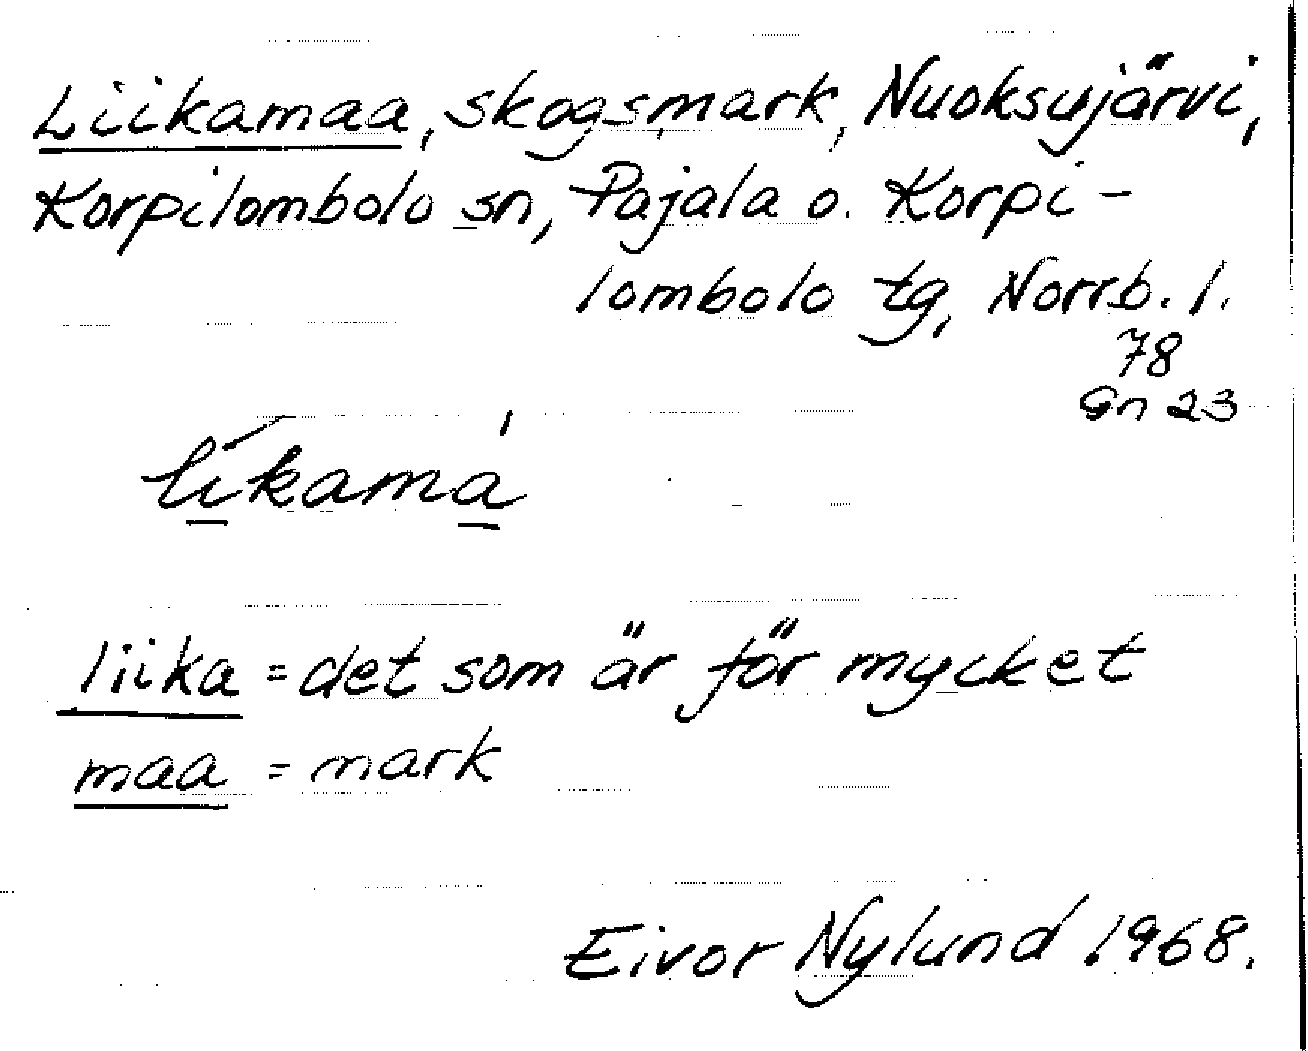 Liikamaa, skogsmark, Nuoksujärvi,
Korpilombolo sn, Pajala o. Korpi-
lombolo tg, Norrb. l.
78
Gn 23
lí̱kamá̱
liika = det som är för mycket
maa = mark
Eivor Nylund 1968.